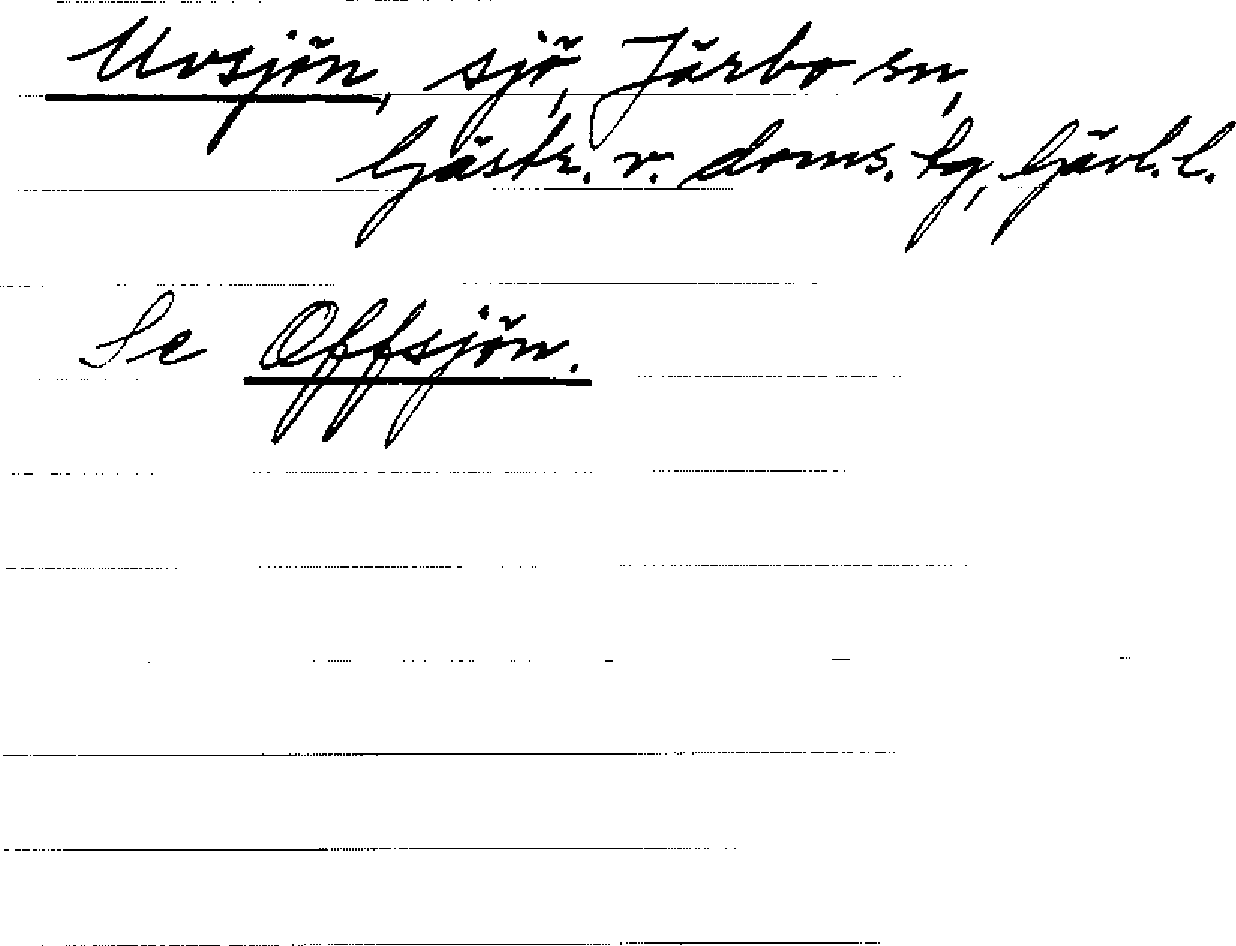 Uvsjön, sjö, Järbo sn,
Gästr. v. doms. tg, Gävl. l.
Se Offsjön.